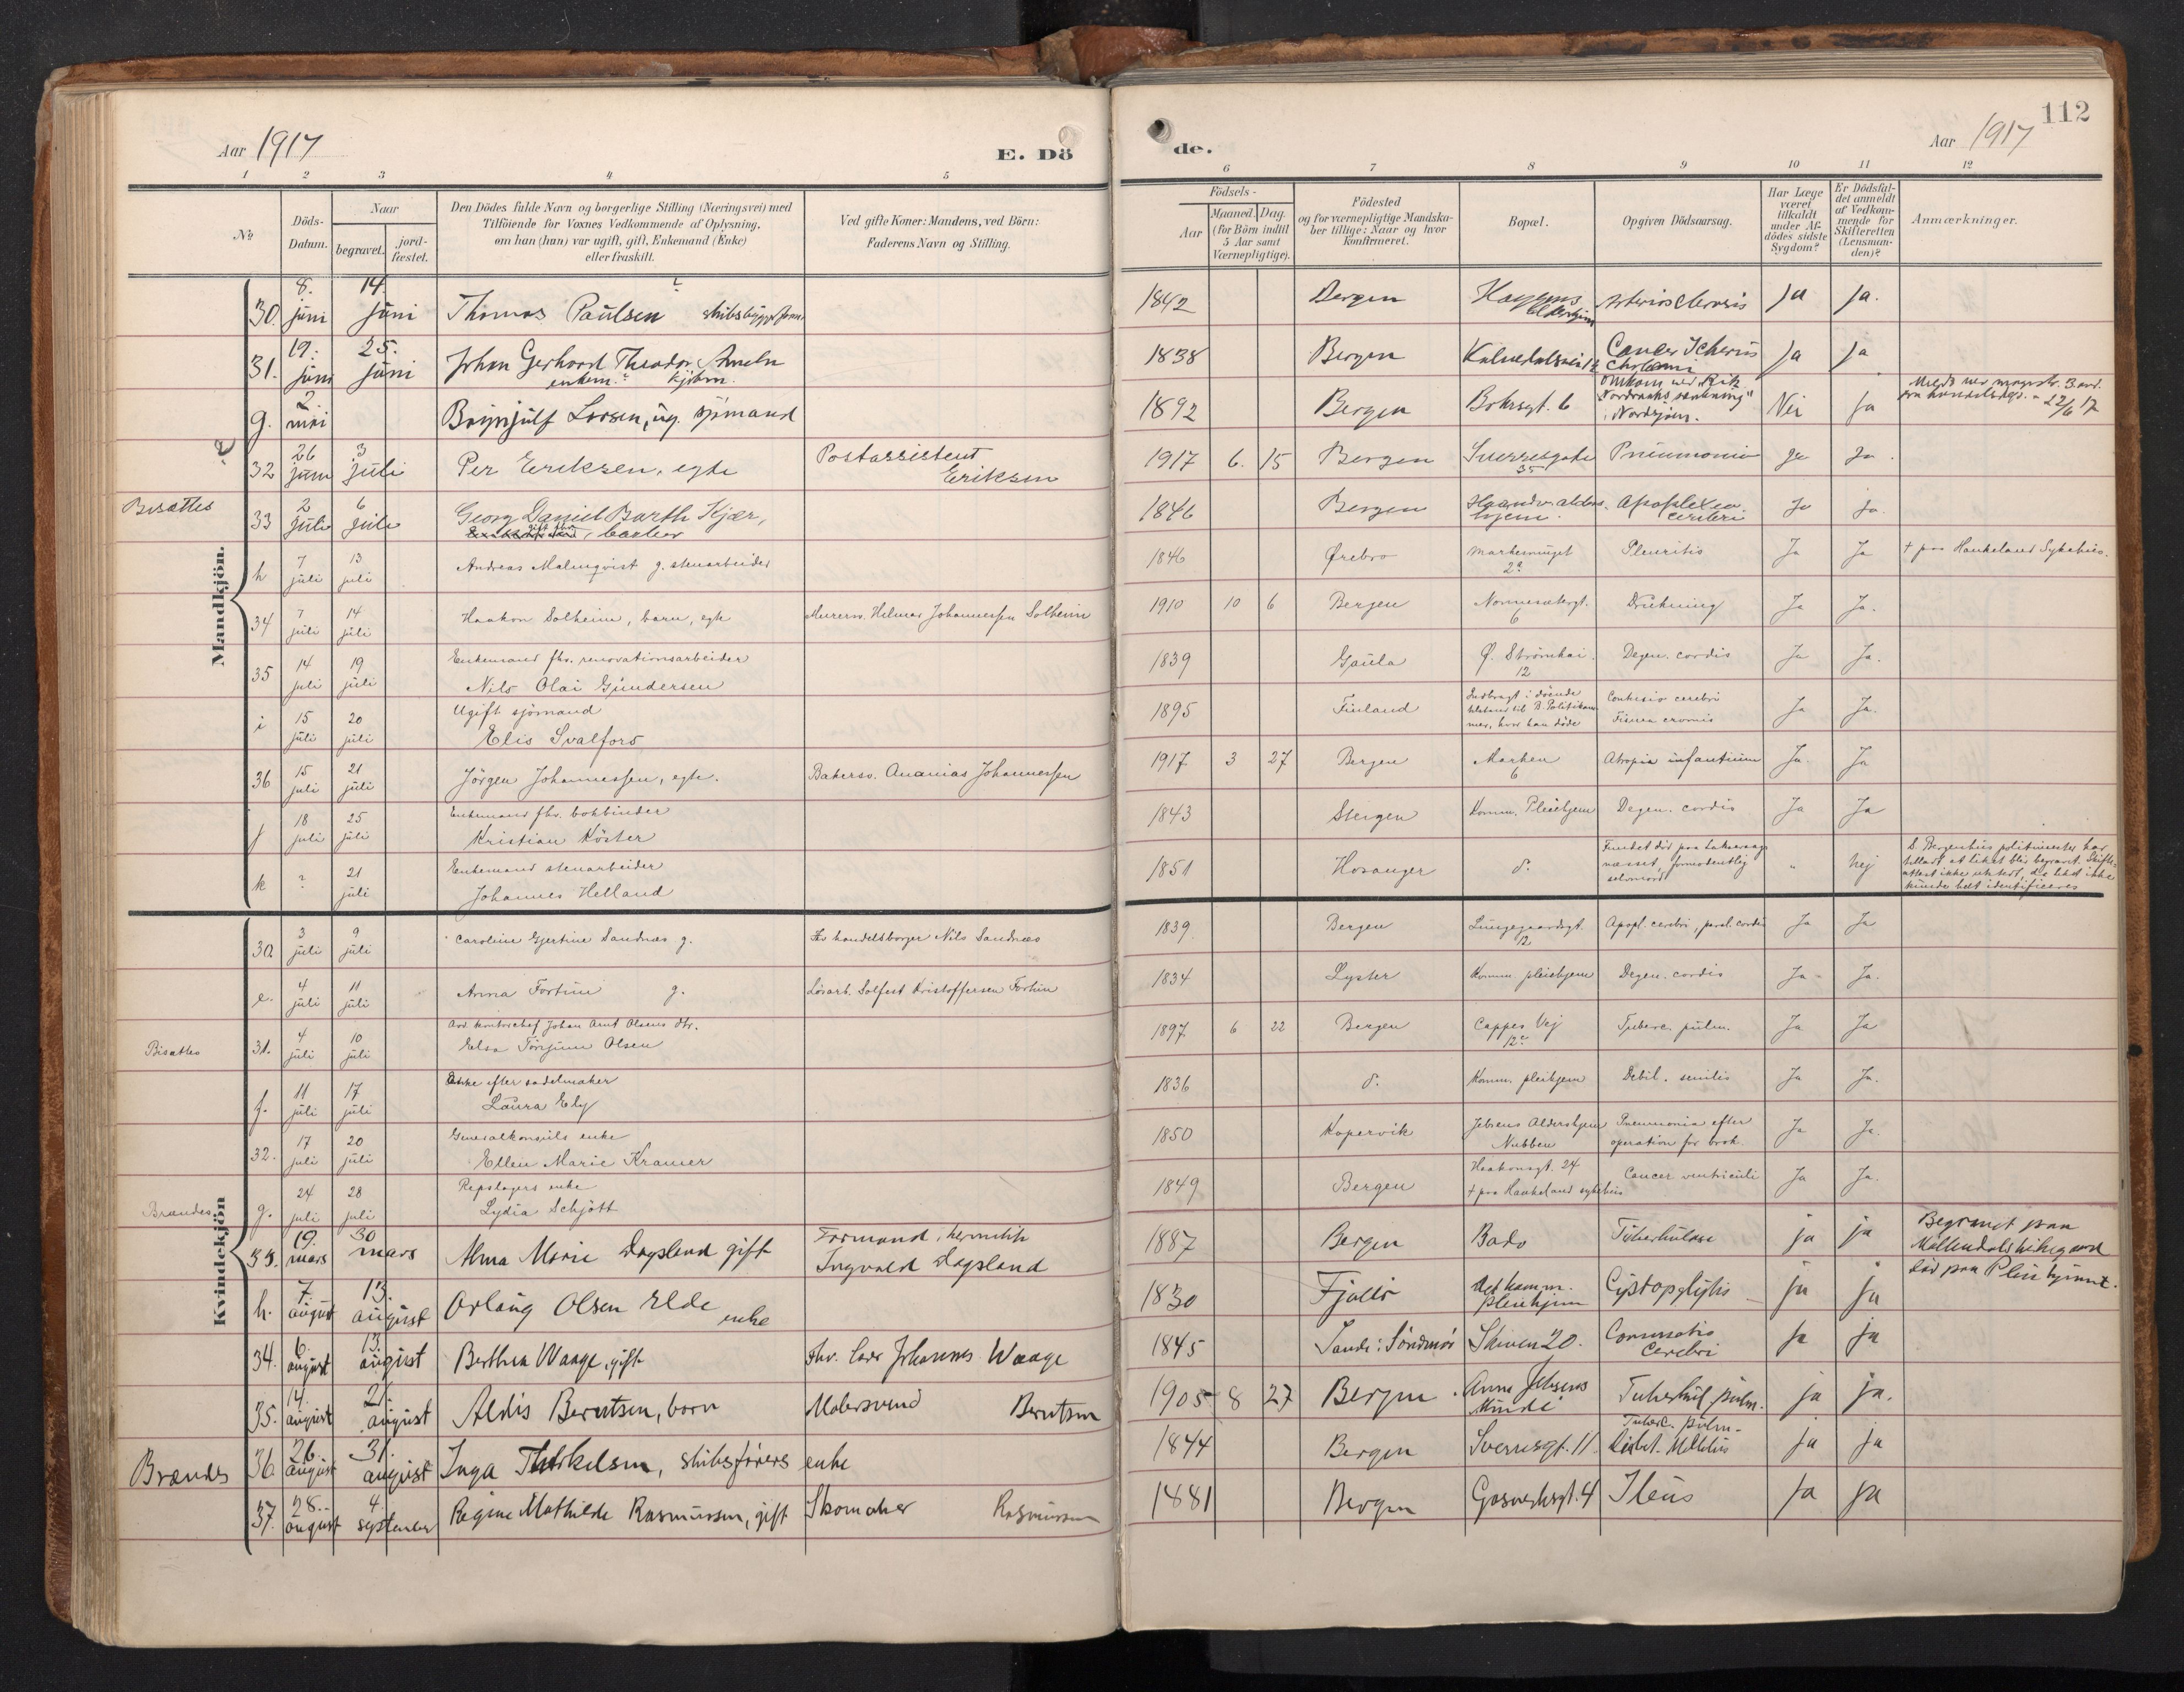 Aar 1917
E. Dö
1 2 3 4 5
№
Döds-
Datum.
Naar
begravet.
jord-
fæstet.
Den Dödes fulde Navn og borgerlige Stilling (Næringsvei) med
Tilföiende for Voxnes Vedkommende af Oplysning,
om han (hun) var ugift, gift, Enkemand (Enke)
eller fraskilt.
Ved gifte Koner: Mandens, ved Börn:
Faderens Navn og Stilling.
Mandkjön.
30. 8. juni 14. juni Thomas Paulsen
31. 19. juni 25. juni Johan Gerhard Theodor Ameln
enkem.? kjöbm.
g. 2 mai Brynjulf Larsen, ug. sjömand
32 26 juni 3 juli Per Eriksen, egte Postassistent
Eriksen
Bisættes
33 2 juli 6 juli Georg Daniel Barth Kjær,
barber
h 7 juli 13 juli Andreas Malmqvist g. stenarbeider
34 7 juli 14 juli Haakon Solheim, barn, egte Murersv. Helmer Johannessen Solheim
35 14 juli 19 juli Enkemand fhv. renovationsarbeider
Nils Olai Gundersen
i 15 juli 20 juli Ugift sjömand
Elis Svalfors
36 15 juli 21 juli Jörgen Johannessen, egte. Bakersv. Ananias Johannessen
j 18 juli 25 juli Enkemand fhv. bokbinder
Kristian Köster
k ? 21 juli Enkemand stenarbeider
Johannes Helland
Kvindekjön
30 3 juli 9 juli Caroline Gjertine Sandnæs g. Fhv handelsborger Nils Sandnæs
e. 4 juli 11 juli Anna Fortun g. Lösarb. Solfest Kristoffersen Fortun
Bisættes
31. 4 juli 10 juli Avd. kontorchef Johan Arnt Olsens dtr.
Elsa Torjum Olsen
f. 11 juli 17 juli Enke efter sadelmaker
Laura Ely
32. 17 juli 20 juli Generalkonsuls enke
Ellen Marie Kramer
Brændes
g. 24 juli 28 juli Repslagers enke
Lydia Schjött
33. 19. mars 30 mars Alma Marie Dagsland gift Formand, hermetik
Ingvald Dagsland
h. 7. august 13. august Orlaug Olsen Elde enke
34. 6. august 13. august Berthea Waage, gift fhv. Johannes Waage
35. 14. august 21. august Aldis Berntsen, barn Malersvend Berntsen
Brændes
36 26. august 31. august Inga Therkelsen, skibsförers enke
37. 28. august 4. september Regine Mathilde Rasmussen, gift Skomaker Rasmussen
de.
112
Aar 1917
6 7 8 9 10 11 12
Aar
Födsels-
Maaned. Dag.
(for Börn indtil
5 Aar samt
Værnepligtige).
Födested
og for værnepligtige Mandska-
ber tillige: Naar og hvor
konfirmeret.
Bopæl.
Opgiven Dödsaarsag.
Har Læge
været
tilkaldt
under Af-
dödes sidste
Sygdom?
Er Dödsfal-
det anmeldt
af Vedkom-
mende for
Skifteretten
(Lensman-
den)?
Anmærkninger.
1842 Bergen Arteriosclerosis ja ja.
1838 Bergen Kalvedalsvei Cancer ja ja
1892 Bergen Bohrsgt. 6 Omkom ved
Nordraaks sænkning"
i Nordsjöen. Nei ja 22/6 17
1917 6. 15 Bergen Sverresgate
35 Pneumonia ja Ja.
1846 Bergen Haandv. alders.
hjem. Apoplexia
cerebri Ja ja.
1846 Ørebro Markesmuget
2ª Pleuritis Ja Ja † paa Haukeland Sykehus.
1910 10 6 Bergen Nonnesætergt.
6 Drukning Ja Ja.
1839 Gaula Ø. Strömkai.
12 Degen. cordis Ja Ja.
1895 Finland Indbragt i döende
tilstand til B. Politikam
mer, hvor han döde Contusio cerebri
Fisura cranis Ja Ja.
1917 3 27 Bergen Marken
6 Atropia infantium Ja. Ja
1843 Steigen Komm. Pleiehjem Degen. cordis Ja Ja
1851 Hosanger d. Fundet död paa Laksevaag
næsset, formodentlig
selvmord " nej S. Bergenhus politimester har
tilladt at liket blir begravet. Skifte-
attest ikke utstedt, da liket ikke
kunde helt identificeres
1839 Bergen Lungegaardsgt.
12 Apopl. cerebri, paral. cordis Ja Ja
1834 Lyster Komm. pleiehjem Degen. cordis Ja Ja.
1897 6 22 Bergen Cappes Vej
12ᶜ Tuberc. pulm. Ja Ja
1836 d. Komm. pleihjem Debil. senilis Ja Ja.
1850 Kopervik Jebsens Aldershjem
Nubben Pneumonia efter
operation for brok. Ja Ja.
1849 Bergen Haakonsgt. 24
† paa Haukeland sykehus Cancer ventriculi Ja Ja.
1887 Bergen Bado Tuberkulose ja ja Begravet paa
Möllendals kirkegaard
1830 Fjaler Det komm.
pleiehjem ja ja Död paa Pleiehjemmet.
1845 Sande i Söndmör Skiven 20. Cerebri ja ja
1905 8 27 Bergen Anna Jebsens
Minde Tuberkul. pulm. ja ja.
1844 Bergen Sverresgt. 11. Tuberc. pulm.
Diabet. Mellitus ja ja
1881 Bergen Gasverksgt. 4 Ileus Ja ja